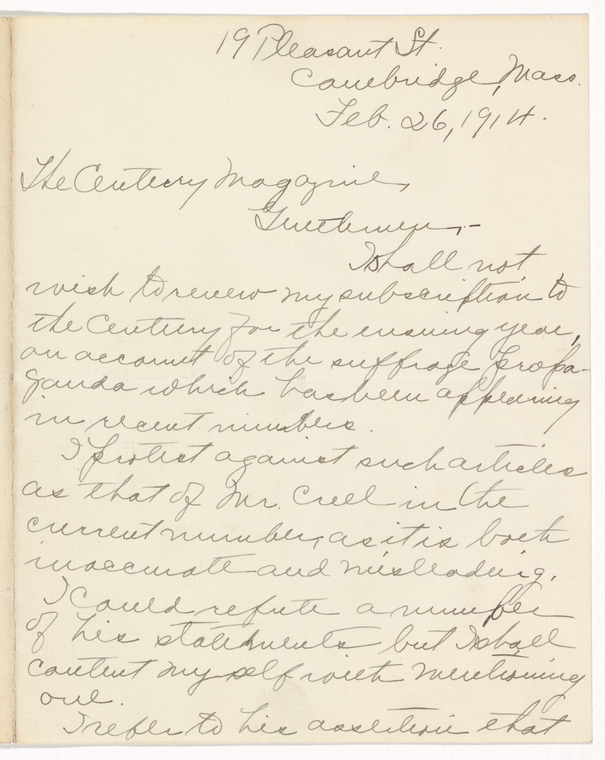 19 Pleasant St.
Cambridge, Mass.
Feb. 26, 1914.
The Century Magazine,
Gentlemen,-
I shall not
wish to renew my subscription to
the Century for the ensuing year,
on account of the suffrage propa-
ganda which has been appearing
in recent numbers.
I protest against such articles
as that of Mr. Creel in the
current number, as it is both
inaccurate and misleading.
I could refute a number
of his statements but I shall
content myself with mentioning
one.
I refer to his assertion that